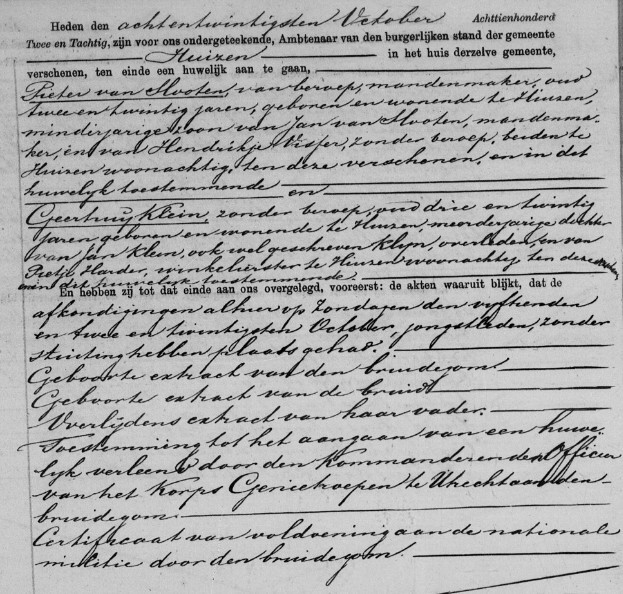 Heden den achtentwintigsten October Achttienhonderd
Twee en Tachtig, zijn voor ons ondergeteekende, Ambtenaar van den burgerlijken stand der gemeente
Huizen in het huis derzelve gemeente,
verschenen, ten einde een huwelijk aan te gaan,
Pieter van Slooten, van beroep, mandenmaker, oud
twee en twintig jaren, geboren en wonende te Huizen,
minderjarige zoon van Jan van Slooten, mandenma-
ker, en van Hendrikje Visser, zonder beroep, beiden te
Huizen woonachtig, ten deze verschenen, en in dit
huwelyk toestemmende en
Geertruy Klein, zonder beroep, oud drie en twintig
jaren, geboren en wonende te Huizen, meerderjarige dochter
van Jan Klein, ook wel geschreven Klyn, overleden, en van
Pietje Harder, winkelierster te Huizen woonachtig ten deze
en in dit huwelyk toestemmende.
En hebben zij tot dat einde aan ons overgelegd, vooreerst: de akten waaruit blijkt, dat de
afkondigingen alhier op Zondagen den vyftienden
en twee en twintigsten October, jongstleden, zonder
stuiting hebben plaats gehad.
Geboorte extract van den bruidegom.
Geboorte extract van de bruid.
Overlijdens extract van haar vader.
Toestemming tot het aangaan van een huwe-
lyk verleend door den Kommanderenden Officier
van het Korps Genietroepen te Utrecht aan den
bruidegom.
Certificaat van voldoening aan de nationale
militie door den bruidegom.